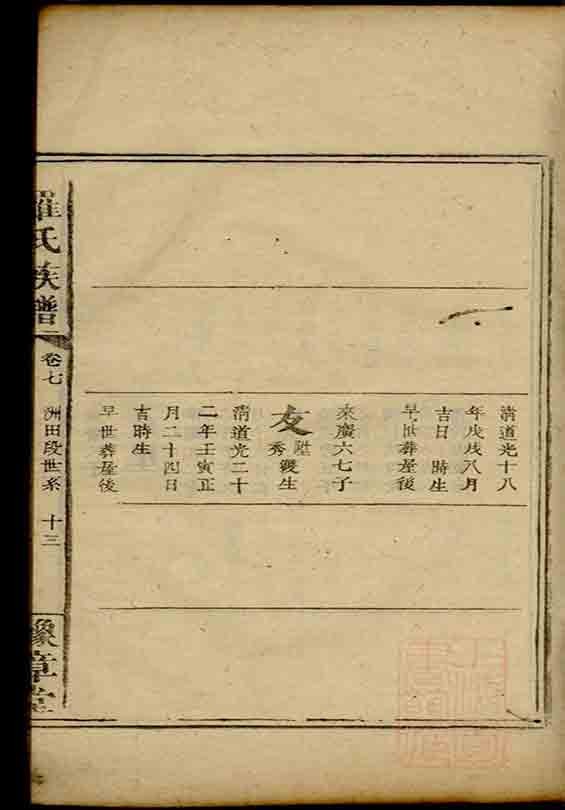 清道光十八
年戊戌八月
吉日 時生
早世葬屋後
來廣六七子
友
陞
秀縵生
清道光二十
二年壬寅正
月二十四日
吉時生
早世葬屋後
羅氏族譜
卷七
洲田段世系
十三
豫章堂